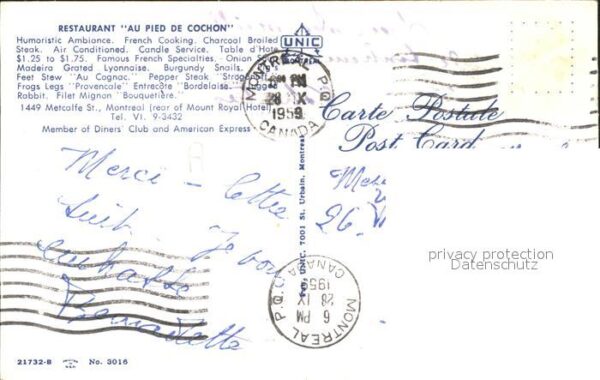 RESTAURANT "AU PIED DE COCHON"
Humoristic Ambiance. French Cooking. Charcoal Broiled
Steak. Air Conditioned. Candle Service. Table d'Hote
$1.25 to $1.75. Famous French Specialties. Onion
Madeira Grated Lyonnaise. Burgundy Snails.
Feet Stew "Au Cognac." Pepper Steak
Frogs Legs "Provencale" Entrecôte "Bordelaise."
Rabbit. Filet Mignon "Bouquerière."
1449 Metcalfe St., Montreal (rear of Mount Royal Hotel)
Tel. VI. 9-3432
Member of Diners' Club and American Express
UNIC
MONTREAL P.Q.
PM
28 IX
1959
CANADA
Carte Postale
Post Card
UNIC, 7001 St. Urbain, Montreal
Merci - lettre
suit. Je vous
embrasse
Bernadette
26
MONTREAL P.Q.
6 PM
28 IX
CANADA
privacy protection
Datenschutz
21732-B No. 3016